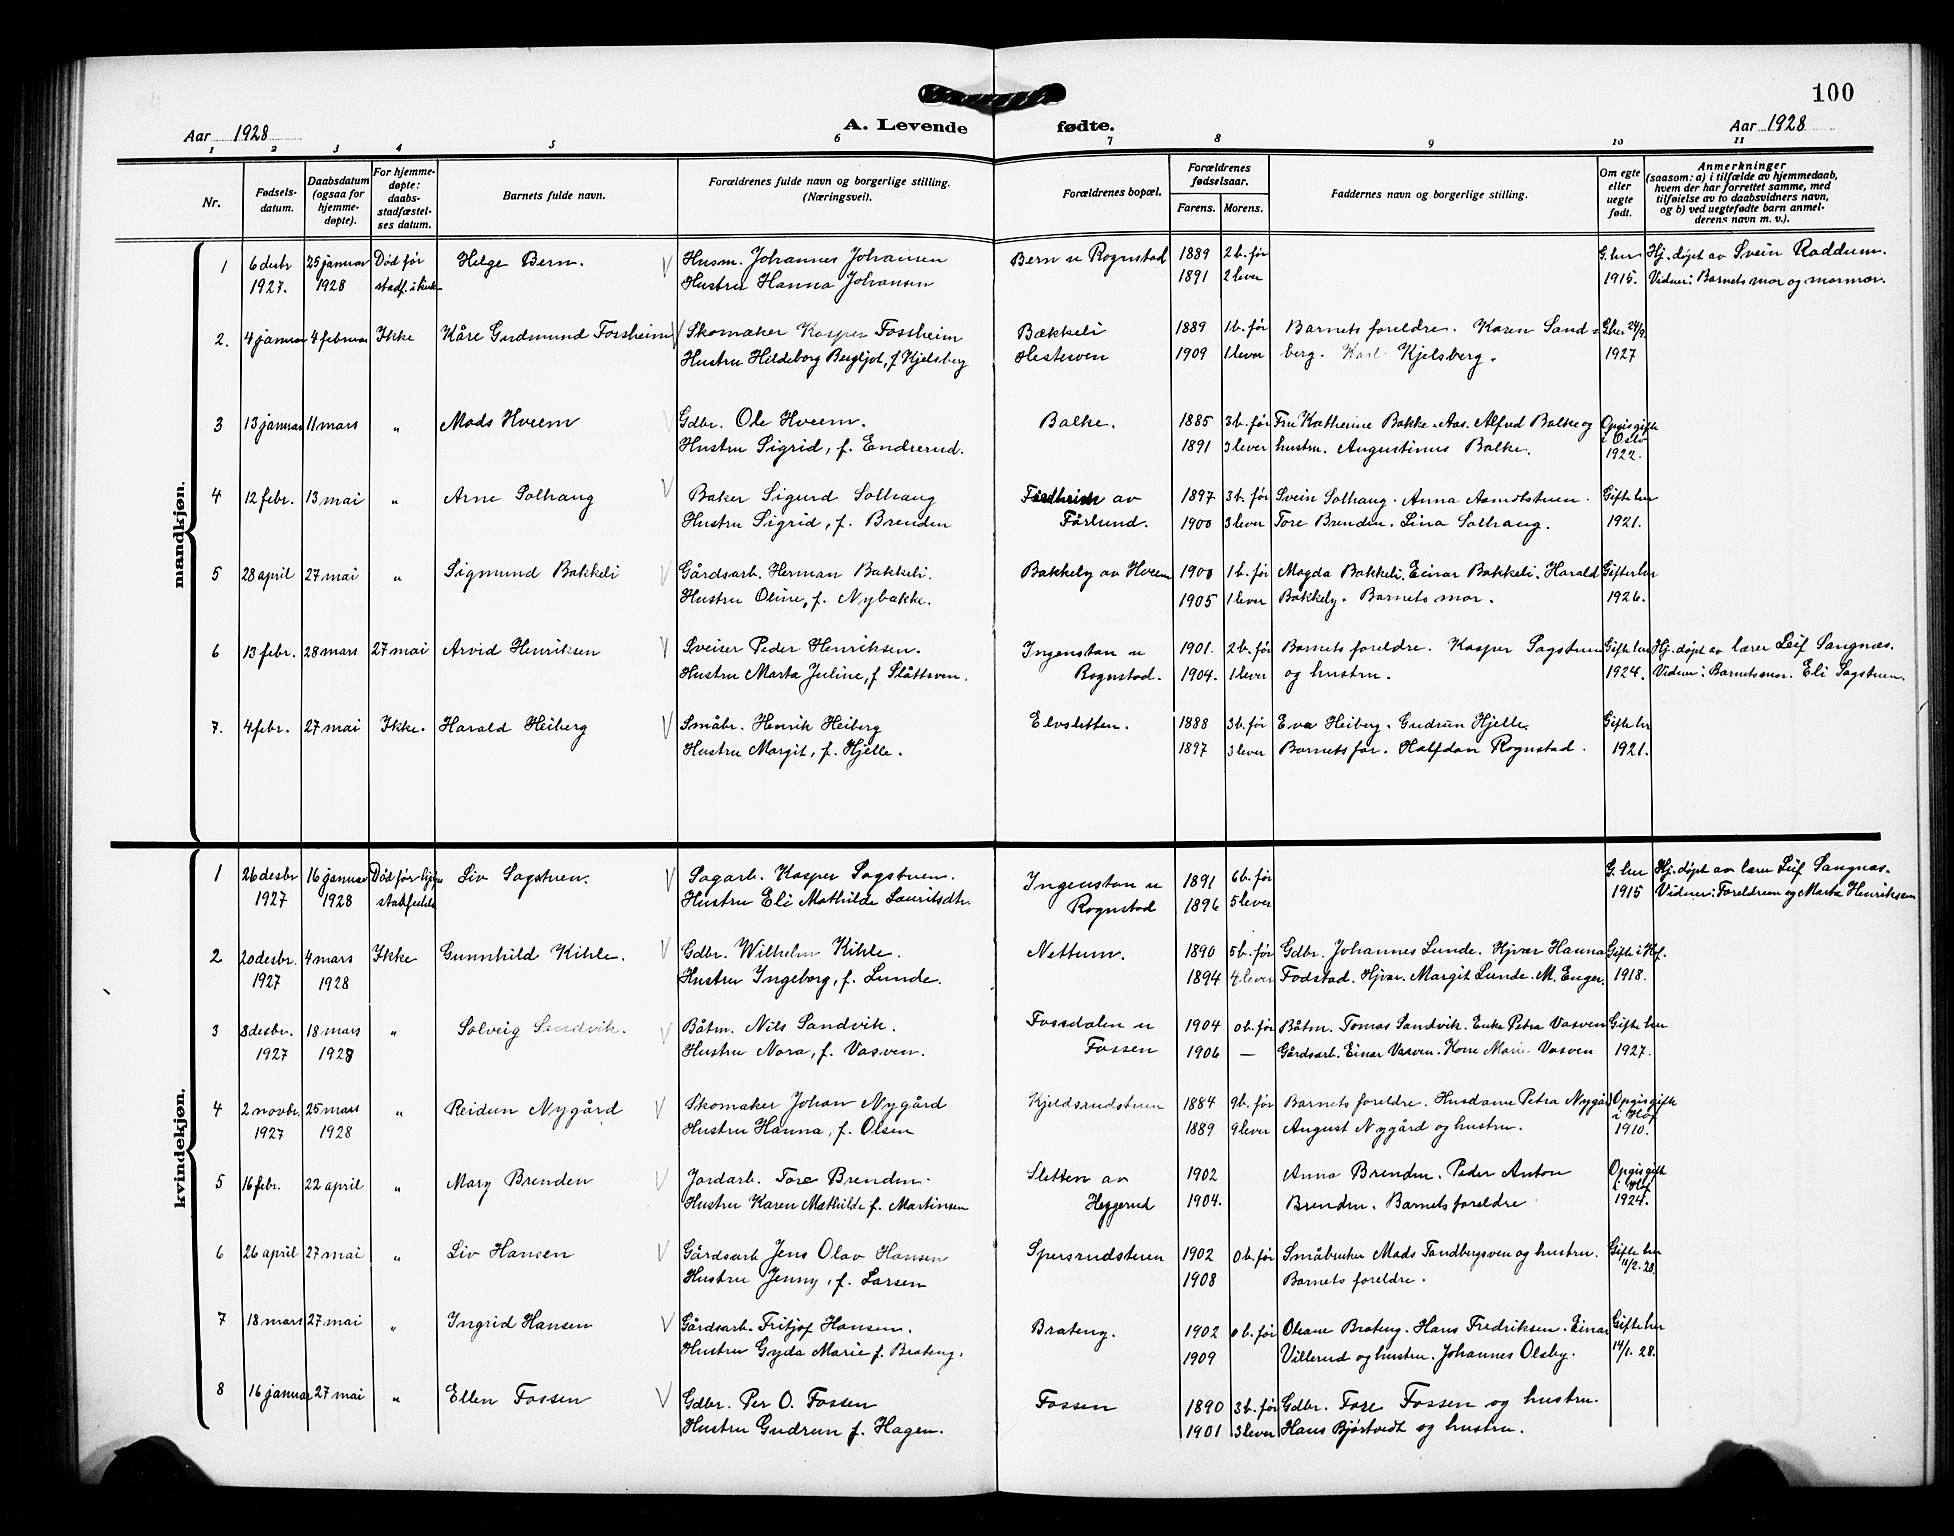 100
Aar 1928
A. Levende fødte.
Aar 1928
1 2 3 4 5 6 7 8 9 10 11
Nr.
Fødsels-
datum.
Daabsdatum
(ogsaa for
hjemme-
døpte).
For hjemme-
døpte:
daabs-
stadfæstel-
ses datum.
Barnets fulde navn.
Forældrenes fulde navn og borgerlige stilling.
(Næringsvei).
Forældrenes bopæl.
Forældrenes
fødselsaar.
Farens. Morens.
Faddernes navn og borgerlige stilling.
Om egte
eller
uegte
født.
Anmerkninger
(saasom: a) i tilfælde av hjemmedaab,
hvem der har forrettet samme, med
tilføielse av to daabsvidners navn,
og b) ved uegtefødte barn anmel-
derens navn m. v.).
mandkjøn.
1 6 desbr 25 januar Død før Helge Bern. Husm. Johannes Johansen Bern u Rognstad 1889 2 b. før G. her Hj. døpt av Svein Raddum.
1927. 1928 stadf. i kirk Hustru Hanna Johansen 1891 2 lever 1915. Vidner: Barnets mor og mormor.
2. 4 januar 4 februar Ikke Kåre Gudmund Fossheim Skomaker Kasper Fossheim Bækkeli 1889 1 b. før Barnets foreldre. Karen Sand- G. her 24/9
Hustru Hildeborg Bergljot, f Kjelsberg Hestesven 1909 1 lever berg. Karl Kjelsberg. 1927
3 13 januar 11 mars " Mads Hveem Gdbr. Ole Hveem. Balke. 1885 3 b. før Fru Katherine Bakke. Aas. Alfred Balke og Opgis gifte
Hustru Sigrid, f. Endrerud. 1891 3 lever hustru. Augustinus Balke. i Oslo
1922.
4 12 febr. 13 mai " Arne Solhaug Baker Sigurd Solhaug av 1897 3 b. før Svein Solhaug. Anna Asmdtstuen. Gifte her
Hustru Sigrid, f. Brenden Fårlund. 1900 3 lever Tore Brenden. Lina Solhaug. 1921.
5 28 april 27 mai " Sigmund Bakkeli Gårdsarb. Herman Bakkeli. Bakkely av Hveem 1900 1 b. før Magda Bakkeli. Einar Bakkeli. Harald Gifte her
Hustru Oline, f. Nybakke. 1905 1 lever Bakkely. Barnets mor. 1926.
6 13 febr. 28 mars 27 mai Arvid Henriksen Sveiser Peder Henriksen. Ingenstan u 1901. 2 b. før Barnets foreldre. Kasper Sagstuen Gifte her Hj. døpt av lærer Leif Sangnæs.
Hustru Marta Juline, f Slåttsven. Rognstad. 1904. 1 lever og hustru. 1924. Vidner: Barnets mor. Eli Sagstuen.
7. 4 febr. 27 mai Ikke. Harald Heiberg Småbr. Henrik Heiberg Elvsletten. 1888 3 b. før Eva Heiberg. Gudrun Hjelle. Gifte her
Hustru Margit, f. Hjelle. 1897 3 lever Barnets far. Halfdan Rognstad. 1921.
kvindekjøn.
1 26 desbr 16 januar Død før Liv Sagstuen. Sagarb. Kasper Sagstuen. Ingenstan u 1891 6 b. før G. her Hj. døpt av lærer Leif Sangnæs.
1927 1928 Hustru Eli Mathilde Lauritsdtr. Rognstad 1896 5 lever 1915 Vidner: Foreldrene og Marta Henriksen
2 20 desbr. 4 mars Ikke Gunnhild Kihle. Gdbr. Wilhelm Kihle. Nettum. 1890 5 b. før Gdbr. Johannes Lunde. Hjvær Hanna Gifte i Hof.
1927 1928 Hustru Ingeborg, f. Lunde. 1894 4 lever Fodstad. Hjvær. Margit Lunde. M. Enger. 1918.
3 8 desbr. 18 mars " Solveig Sandvik. Båtm. Nils Sandvik. Fossdalen u 1904 0 b. før Båtm. Tomas Sandvik. Enke Petra Vasven Gifte her
1927 1928 Hustru Nora, f. Vasven. Fossen 1906 — Gårdsarb. Einar Vasven. Kone Marie Vasven 1927.
4 2 novbr. 25 mars " Reidun Nygård Skomaker Johan Nygård Kjeldsrudstuen 1884 9 b. før Barnets foreldre. Husdame Petra Nygård Opgis gifte
1927 1928 Hustru Hanna, f. Olsen 1889 9 lever August Nygård og hustru. i Hof
1910.
5 16 febr. 22 april " Mary Brenden Jordarb. Tore Brenden. Sletten av 1902 Anna Brenden. Peder Anton Opgis gift
Hustru Karen Mathilde f. Martinsen Heggerud 1904. Brenden. Barnets foreldre i Hof
1924.
6 26 april 27 mai " Liv Hansen Gårdsarb Jens Olav Hansen Spersrudstuen 1902 0 b. før Småbruker Mads Tandbergsven og hustru. Gifte her
Hustru Jenny, f. Larsen 1908 Barnets foreldre. 11/2. 28.
7 18 mars 27 mai " Ingrid Hansen Gårdsarb. Fritjof Hansen. Brateng. 1902 0 b. før Oleane Brateng. Hans Fredriksen. Einar Gifte her
Hustru Gyda Marie f. Brateng. 1909 Villerud og hustru. Johannes Olsby. 14/1. 28.
8 16 januar 27 mai " Ellen Fossen Gdbr. Per O. Fossen Fossen 1890 3 b. før Gdbr. Tore Fossen og hustru.
Hustru Gudrun f. Hagen. 1901 3 lever Hans Bjørtvedt og hustru.